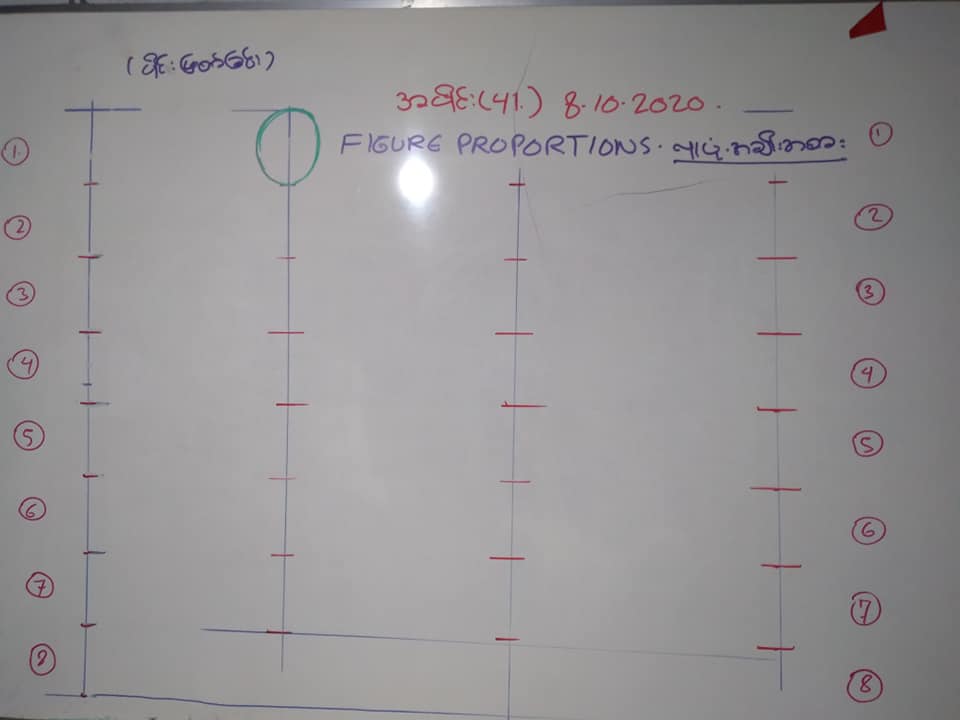 အပိုင်း(41.) 8.10.2020.
FIGURE PROPORTIONS.
1.
2
3
4
5
6
7
8
1
2
3
4
5
6
7
8